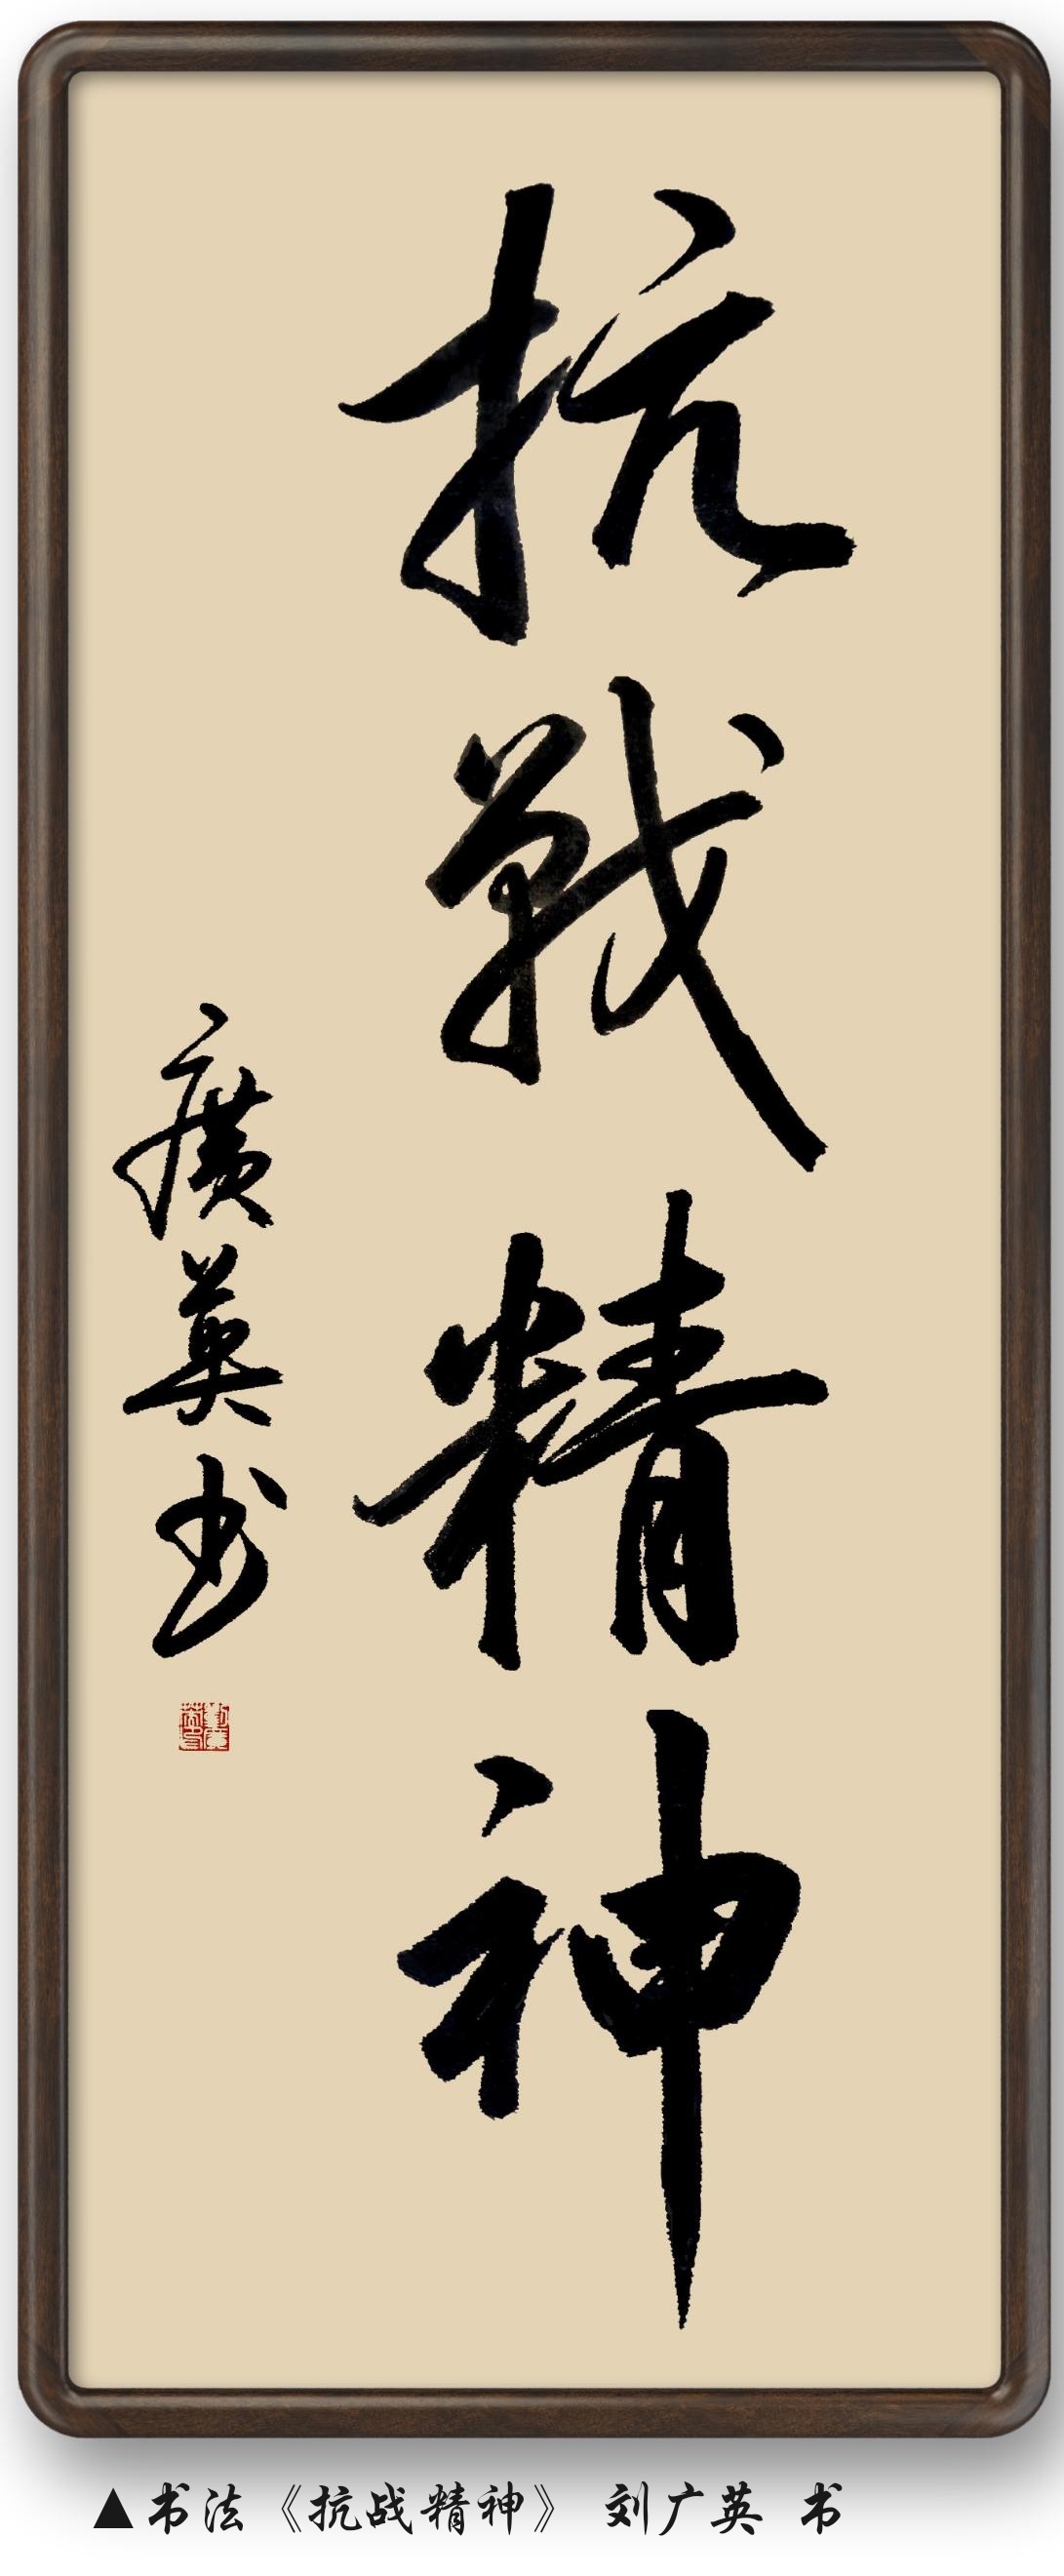 抗戰精神
廣英书
▲书法《抗战精神》 刘广英 书